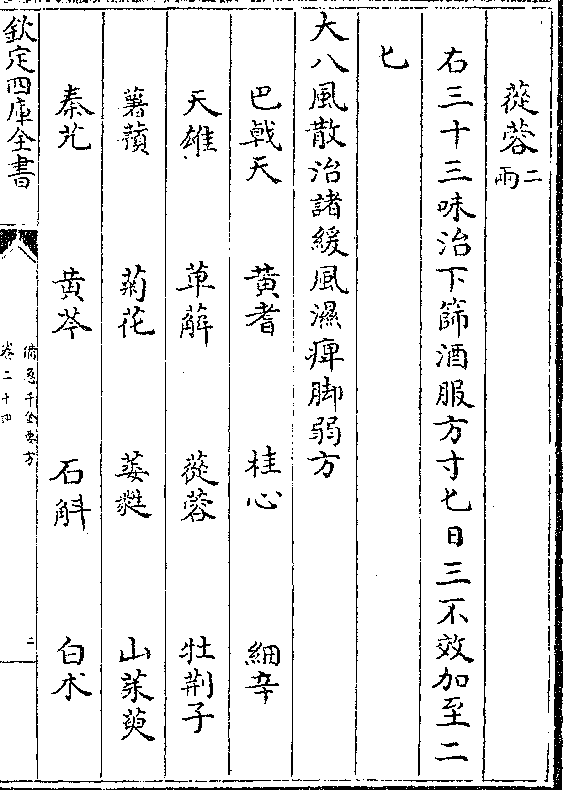 蓯蓉二兩
右三十三味治下篩酒服方寸匕日三不效加至二
匕
大八風散治諸緩風濕痺脚弱方
巴戟天 黄耆 桂心 細辛
天雄 萆薢 蓯蓉 牡荆子
薯蕷 菊花 萎蕤 山茱萸
秦艽 黄芩 石斛 白朮
欽定四庫全書
備急千金要方
卷二十四
二